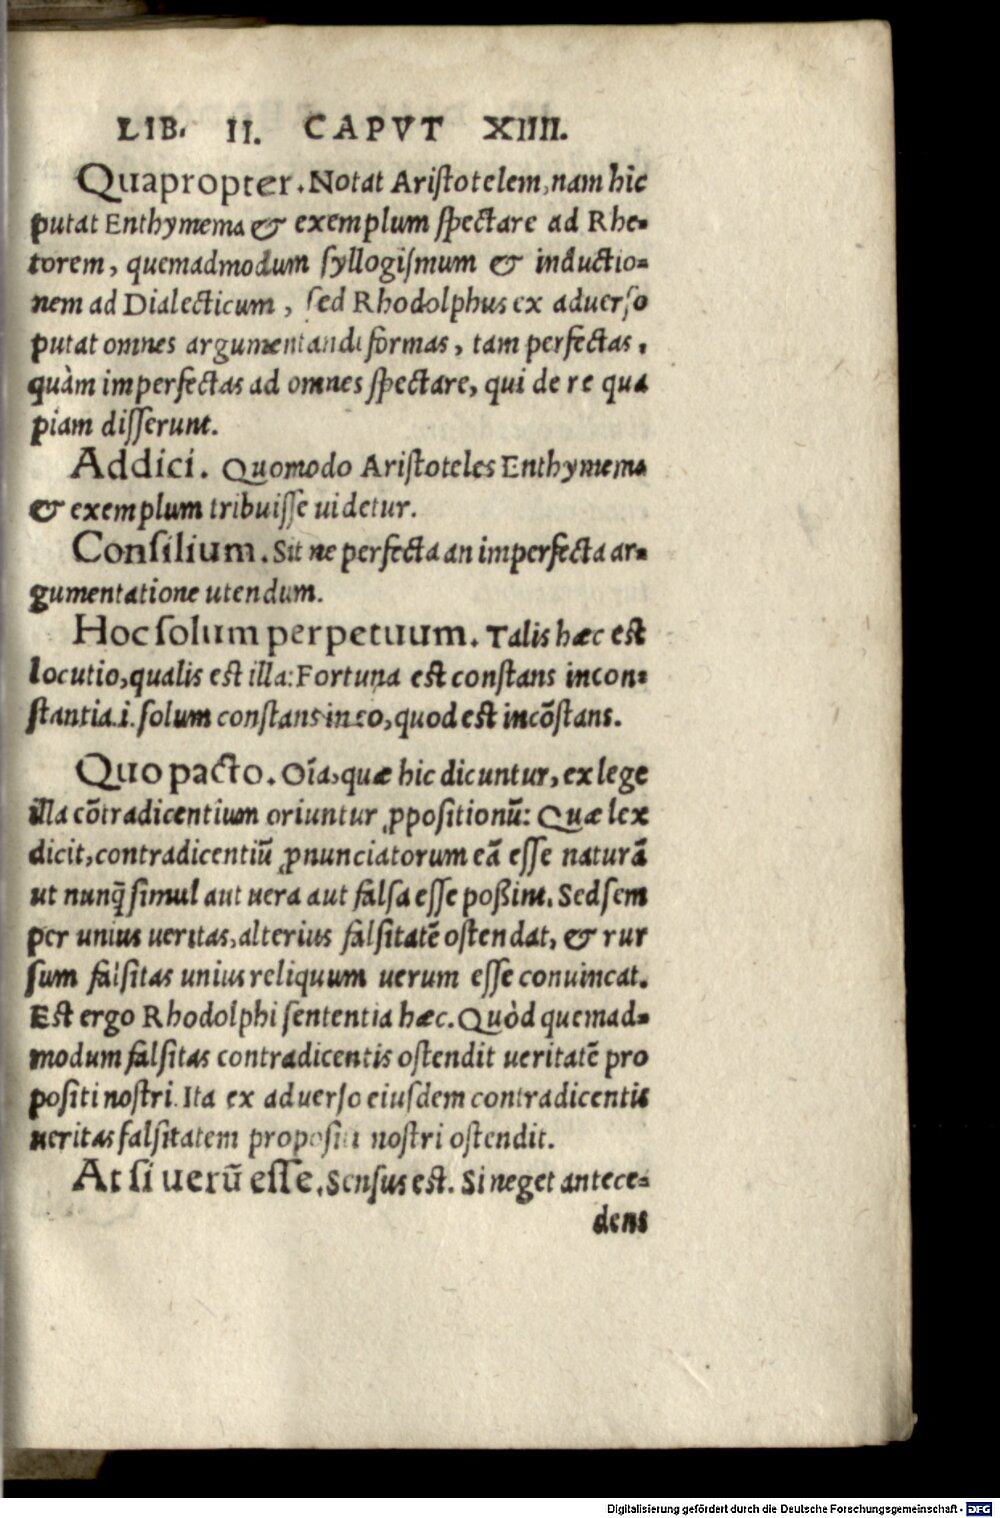 LIB. II. CAPVT XIIII.
Quapropter. Notat Aristotelem, nam hic
putat Enthymema & exemplum spectare ad Rhe-
torem, quemadmodum syllogismum & inductio-
nem ad Dialecticum, sed Rhodolphus ex aduerso
putat omnes argumentandi formas, tam perfectas,
quàm imperfectas ad omnes spectare, qui de re qua
piam disserunt.
Addici. Quomodo Aristoteles Enthymema
& exemplum tribuisse uidetur.
Consilium. Sit ne perfecta an imperfecta ar-
gumentatione utendum.
Hoc solum perpetuum. Talis hæc est
locutio, qualis est illa: Fortuna est constans incon-
stantia .i. solum constans in eo, quod est incõstans.
Quo pacto. Oĩa, quæ hic dicuntur, ex lege
illa cõtradicentium oriuntur ꝓpositionũ: Quæ lex
dicit, contradicentiũ ꝓnunciatorum eã esse naturã
ut nunq̃ simul aut uera aut falsa esse poßint. Sed sem
per unius ueritas, alterius falsitatẽ ostendat, & rur
sum falsitas unius reliquum uerum esse conuincat.
Est ergo Rhodolphi sententia hæc. Quòd quemad-
modum falsitas contradicentis ostendit ueritatẽ pro
positi nostri. Ita ex aduerso eiusdem contradicentis
ueritas falsitatem propositi nostri ostendit.
At si uerũ esse. Sensus est. Si neget antece-
dens
Digitalisierung gefördert durch die Deutsche Forschungsgemeinschaft - DFG